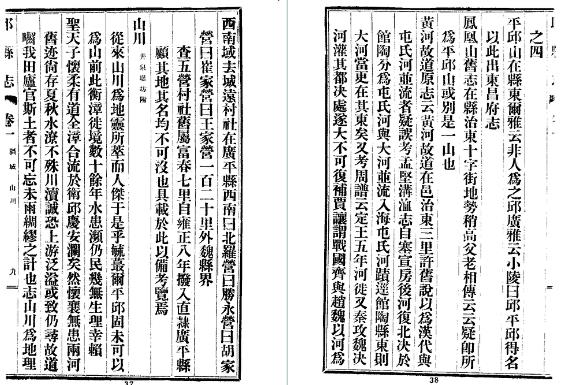 西南域去城遠村社在廣平縣西南曰北羅營曰勝永營曰胡家
營曰崔家營曰王家營一百二十里外魏縣界
查五營村社舊屬富春七里自雍正八年撥入直隸廣平縣
顧其地其名均不可沒也具載於此以備考覽焉
山川 井泉堤坊附
從來山川爲地靈所萃而人傑于是乎毓最爾平邱固未可以
爲山前此衡漳徙境數十餘年水患瀕仍民幾無生理幸賴
聖天子懷柔有道全漳合流於衛邱慶安瀾矣然懷襄無患兩河
舊迹尚存夏秋水潦不殊川瀆誠恐上游泛溢或致仍尋故道
囑我田廬官斯土者不可忘未雨綢繆之計也志山川爲地理
縣志 卷一 疆域 山川 九
37
之四
平邱山在縣東爾雅云非人爲之邱廣雅云小陵曰邱平邱得名
以此出東昌府志
鳳凰山舊志在縣治東十字街地勢稍高父老相傳云云疑卽所
爲平邱山或別是一山也
黃河故道原志云黃河故道在邑治東三里許舊說以爲漢代與
屯氏河並流者疑誤考孟堅溝洫志自塞宣房後河復北决於
館陶分爲屯氏河與大河並流入海屯氏河蹟逕館陶縣東則
大河當更在其東矣又考周譜云定王五年河徙又秦攻魏决
河灌其都决處遂大不可復補賈讓謂戰國齊與趙魏以河爲
38